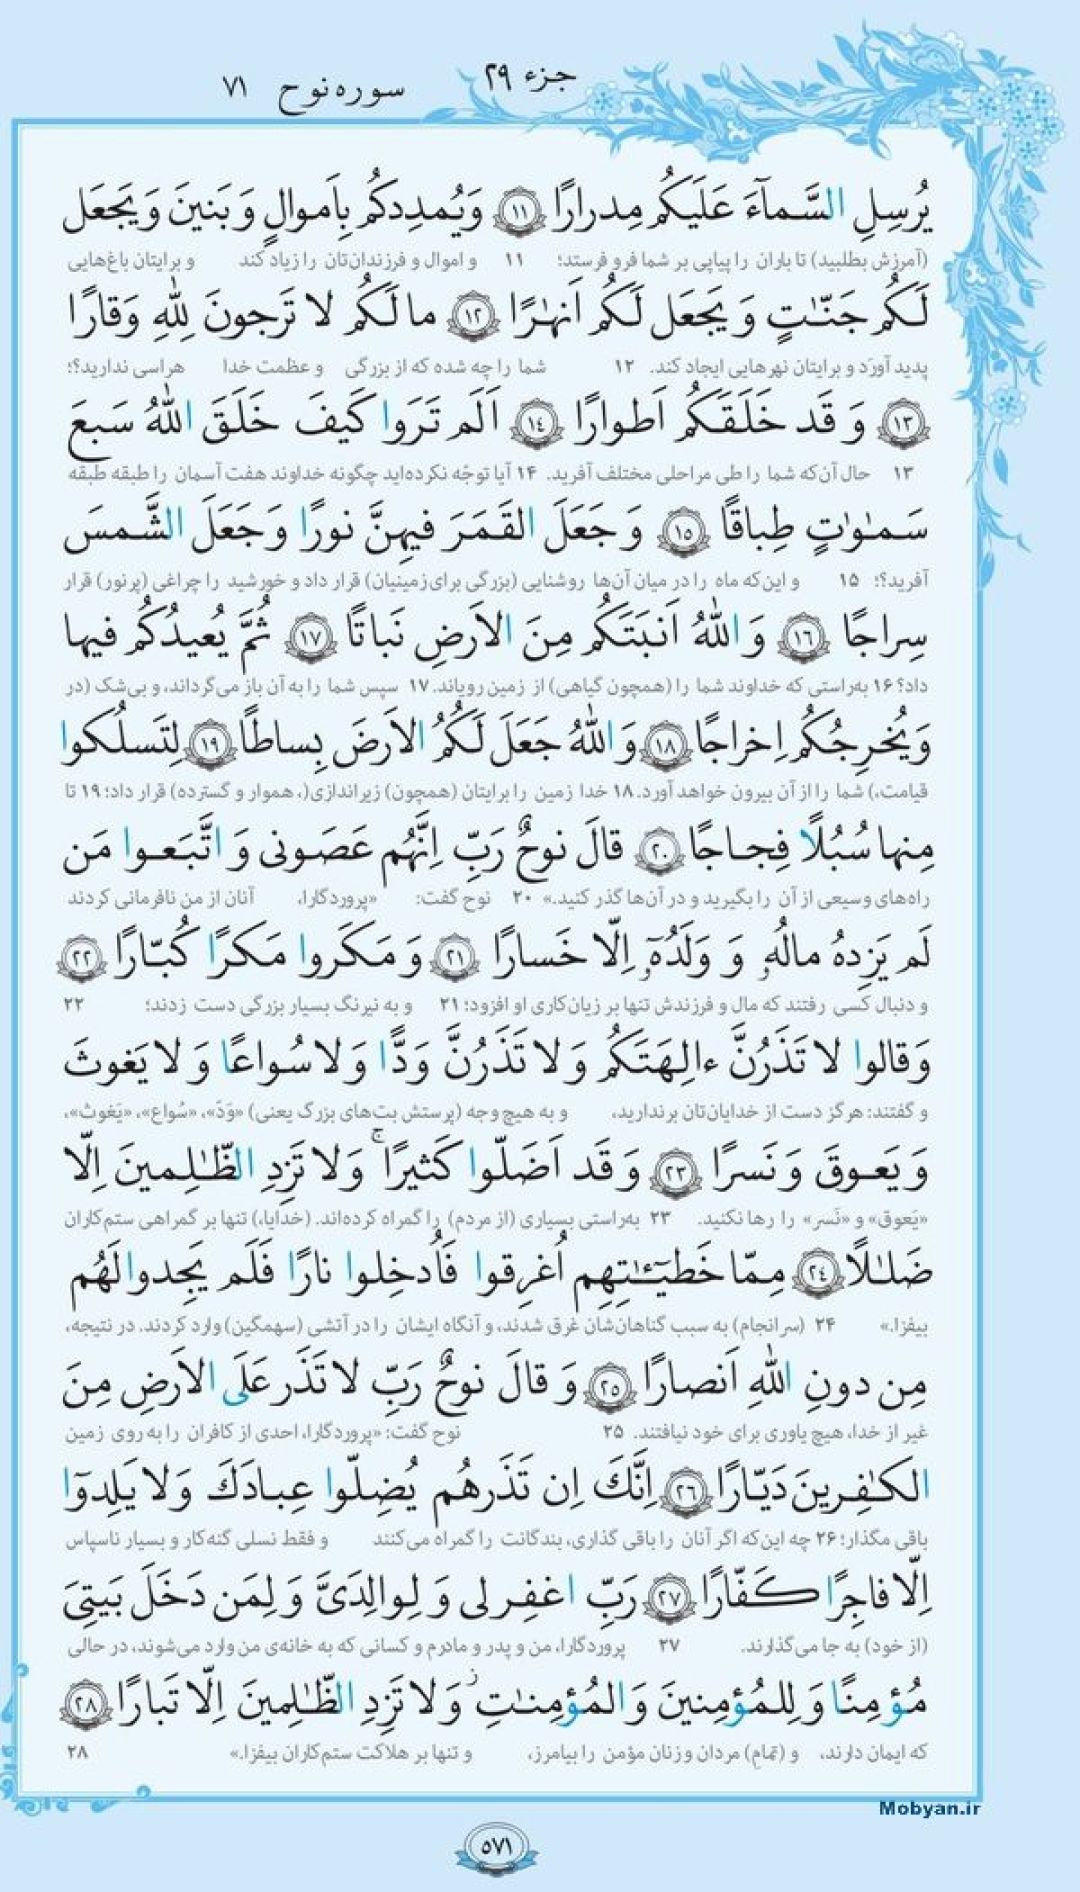 جزء ۲۹
سوره نوح ۷۱
يُرسِلِ السَّمآءَ عَلَيكُم مِدرارًا ﴿١١﴾ وَيُمدِدكُم بِاَموالٍ وَ بَنينَ وَ يَجعَل
(آمرزش بطلبید) تا باران را پیاپی بر شما فرو فرستد؛ ۱۱ و اموال و فرزندان‌تان را زیاد کند و برایتان باغ‌هایی
لَكُم جَنّٰتٍ وَ يَجعَل لَكُم اَنهٰرًا ﴿١٢﴾ ما لَكُم لا تَرجونَ لِلّٰهِ وَقارًا
پدید آورَد و برایتان نهرهایی ایجاد کند. ۱۲ شما را چه شده که از بزرگی و عظمت خدا هراسی ندارید؟؛
﴿١٣﴾ وَ قَد خَلَقَكُم اَطوارًا ﴿١٤﴾ اَلَم تَرَوا كَيفَ خَلَقَ اللّٰهُ سَبعَ
۱۳ حال آن‌که شما را طی مراحلی مختلف آفرید. ۱۴ آیا توجّه نکرده‌اید چگونه خداوند هفت آسمان را طبقه طبقه
سَمٰوٰتٍ طِباقًا ﴿١٥﴾ وَ جَعَلَ القَمَرَ فيهِنَّ نورًا وَ جَعَلَ الشَّمسَ
آفرید؟؛ ۱۵ و این‌که ماه را در میان آن‌ها روشنایی (بزرگی برای زمینیان) قرار داد و خورشید را چراغی (پرنور) قرار
سِراجًا ﴿١٦﴾ وَ اللّٰهُ اَنبَتَكُم مِنَ الاَرضِ نَباتًا ﴿١٧﴾ ثُمَّ يُعيدُكُم فيها
داد؟ ۱۶ به‌راستی که خداوند شما را (همچون گیاهی) از زمین رویاند. ۱۷ سپس شما را به آن باز می‌گرداند، و بی‌شک (در
وَيُخرِجُكُم اِخراجًا ﴿١٨﴾ وَ اللّٰهُ جَعَلَ لَكُمُ الاَرضَ بِساطًا ﴿١٩﴾ لِتَسلُكوا
قیامت،) شما را از آن بیرون خواهد آورد. ۱۸ خدا زمین را برایتان (همچون) زیراندازی(، هموار و گسترده) قرار داد؛ ۱۹ تا
مِنها سُبُلًا فِجاجًا ﴿٢٠﴾ قالَ نوحٌ رَبِّ اِنَّهُم عَصَونى وَ اتَّبَعوا مَن
راه‌های وسیعی از آن را بگیرید و در آن‌ها گذر کنید.» ۲۰ نوح گفت: «پروردگارا، آنان از من نافرمانی کردند
لَم يَزِدهُ مالُهٗ وَ وَلَدُهٗٓ اِلّا خَسارًا ﴿٢١﴾ وَ مَكَروا مَكرًا كُبّارًا ﴿٢٢﴾
و دنبال کسی رفتند که مال و فرزندش تنها بر زیان‌کاری او افزود؛ ۲۱ و به نیرنگ بسیار بزرگی دست زدند؛ ۲۲
وَ قالوا لا تَذَرُنَّ ءالِهَتَكُم وَ لا تَذَرُنَّ وَدًّا وَ لا سُواعًا وَ لا يَغوثَ
و گفتند: هرگز دست از خدایان‌تان برندارید، و به هیچ وجه (پرستش بت‌های بزرگ یعنی) «وَدّ»، «سُواع»، «یَغوث»،
وَ يَعوقَ وَ نَسرًا ﴿٢٣﴾ وَ قَد اَضَلّوا كَثيرًاۚ وَ لا تَزِدِ الظّٰلِمينَ اِلّا
«یَعوق» و «نَسر» را رها نکنید. ۲۳ به‌راستی بسیاری (از مردم) را گمراه کرده‌اند. (خدایا،) تنها بر گمراهی ستم‌کاران
ضَلٰلًا ﴿٢٤﴾ مِمّا خَطيـٰٔتِهِم اُغرِقوا فَاُدخِلوا نارًا فَلَم يَجِدوا لَهُم
بیفزا.» ۲۴ (سرانجام) به سبب گناهان‌شان غرق شدند، و آنگاه ایشان را در آتشی (سهمگین) وارد کردند. در نتیجه،
مِن دونِ اللّٰهِ اَنصارًا ﴿٢٥﴾ وَ قالَ نوحٌ رَبِّ لا تَذَر عَلَى الاَرضِ مِنَ
غیر از خدا، هیچ یاوری برای خود نیافتند. ۲۵ نوح گفت: «پروردگارا، احدی از کافران را به روی زمین
الكٰفِرينَ دَيّارًا ﴿٢٦﴾ اِنَّكَ اِن تَذَرهُم يُضِلّوا عِبادَكَ وَ لا يَلِدوٓا
باقی مگذار؛ ۲۶ چه این‌که اگر آنان را باقی گذاری، بندگانت را گمراه می‌کنند و فقط نسلی گنه‌کار و بسیار ناسپاس
اِلّا فاجِرًا كَفّارًا ﴿٢٧﴾ رَبِّ اغفِر لى وَ لِوالِدَىَّ وَ لِمَن دَخَلَ بَيتِىَ
(از خود) به جا می‌گذارند. ۲۷ پروردگارا، من و پدر و مادرم و کسانی که به خانه‌ی من وارد می‌شوند، در حالی
مُؤمِنًا وَ لِلمُؤمِنينَ وَ المُؤمِنٰتِ وَ لا تَزِدِ الظّٰلِمينَ اِلّا تَبارًا ﴿٢٨﴾
که ایمان دارند، و (تمامِ) مردان و زنان مؤمن را بیامرز، و تنها بر هلاکت ستم‌کاران بیفزا.» ۲۸
Mobyan.ir
۵۷۱